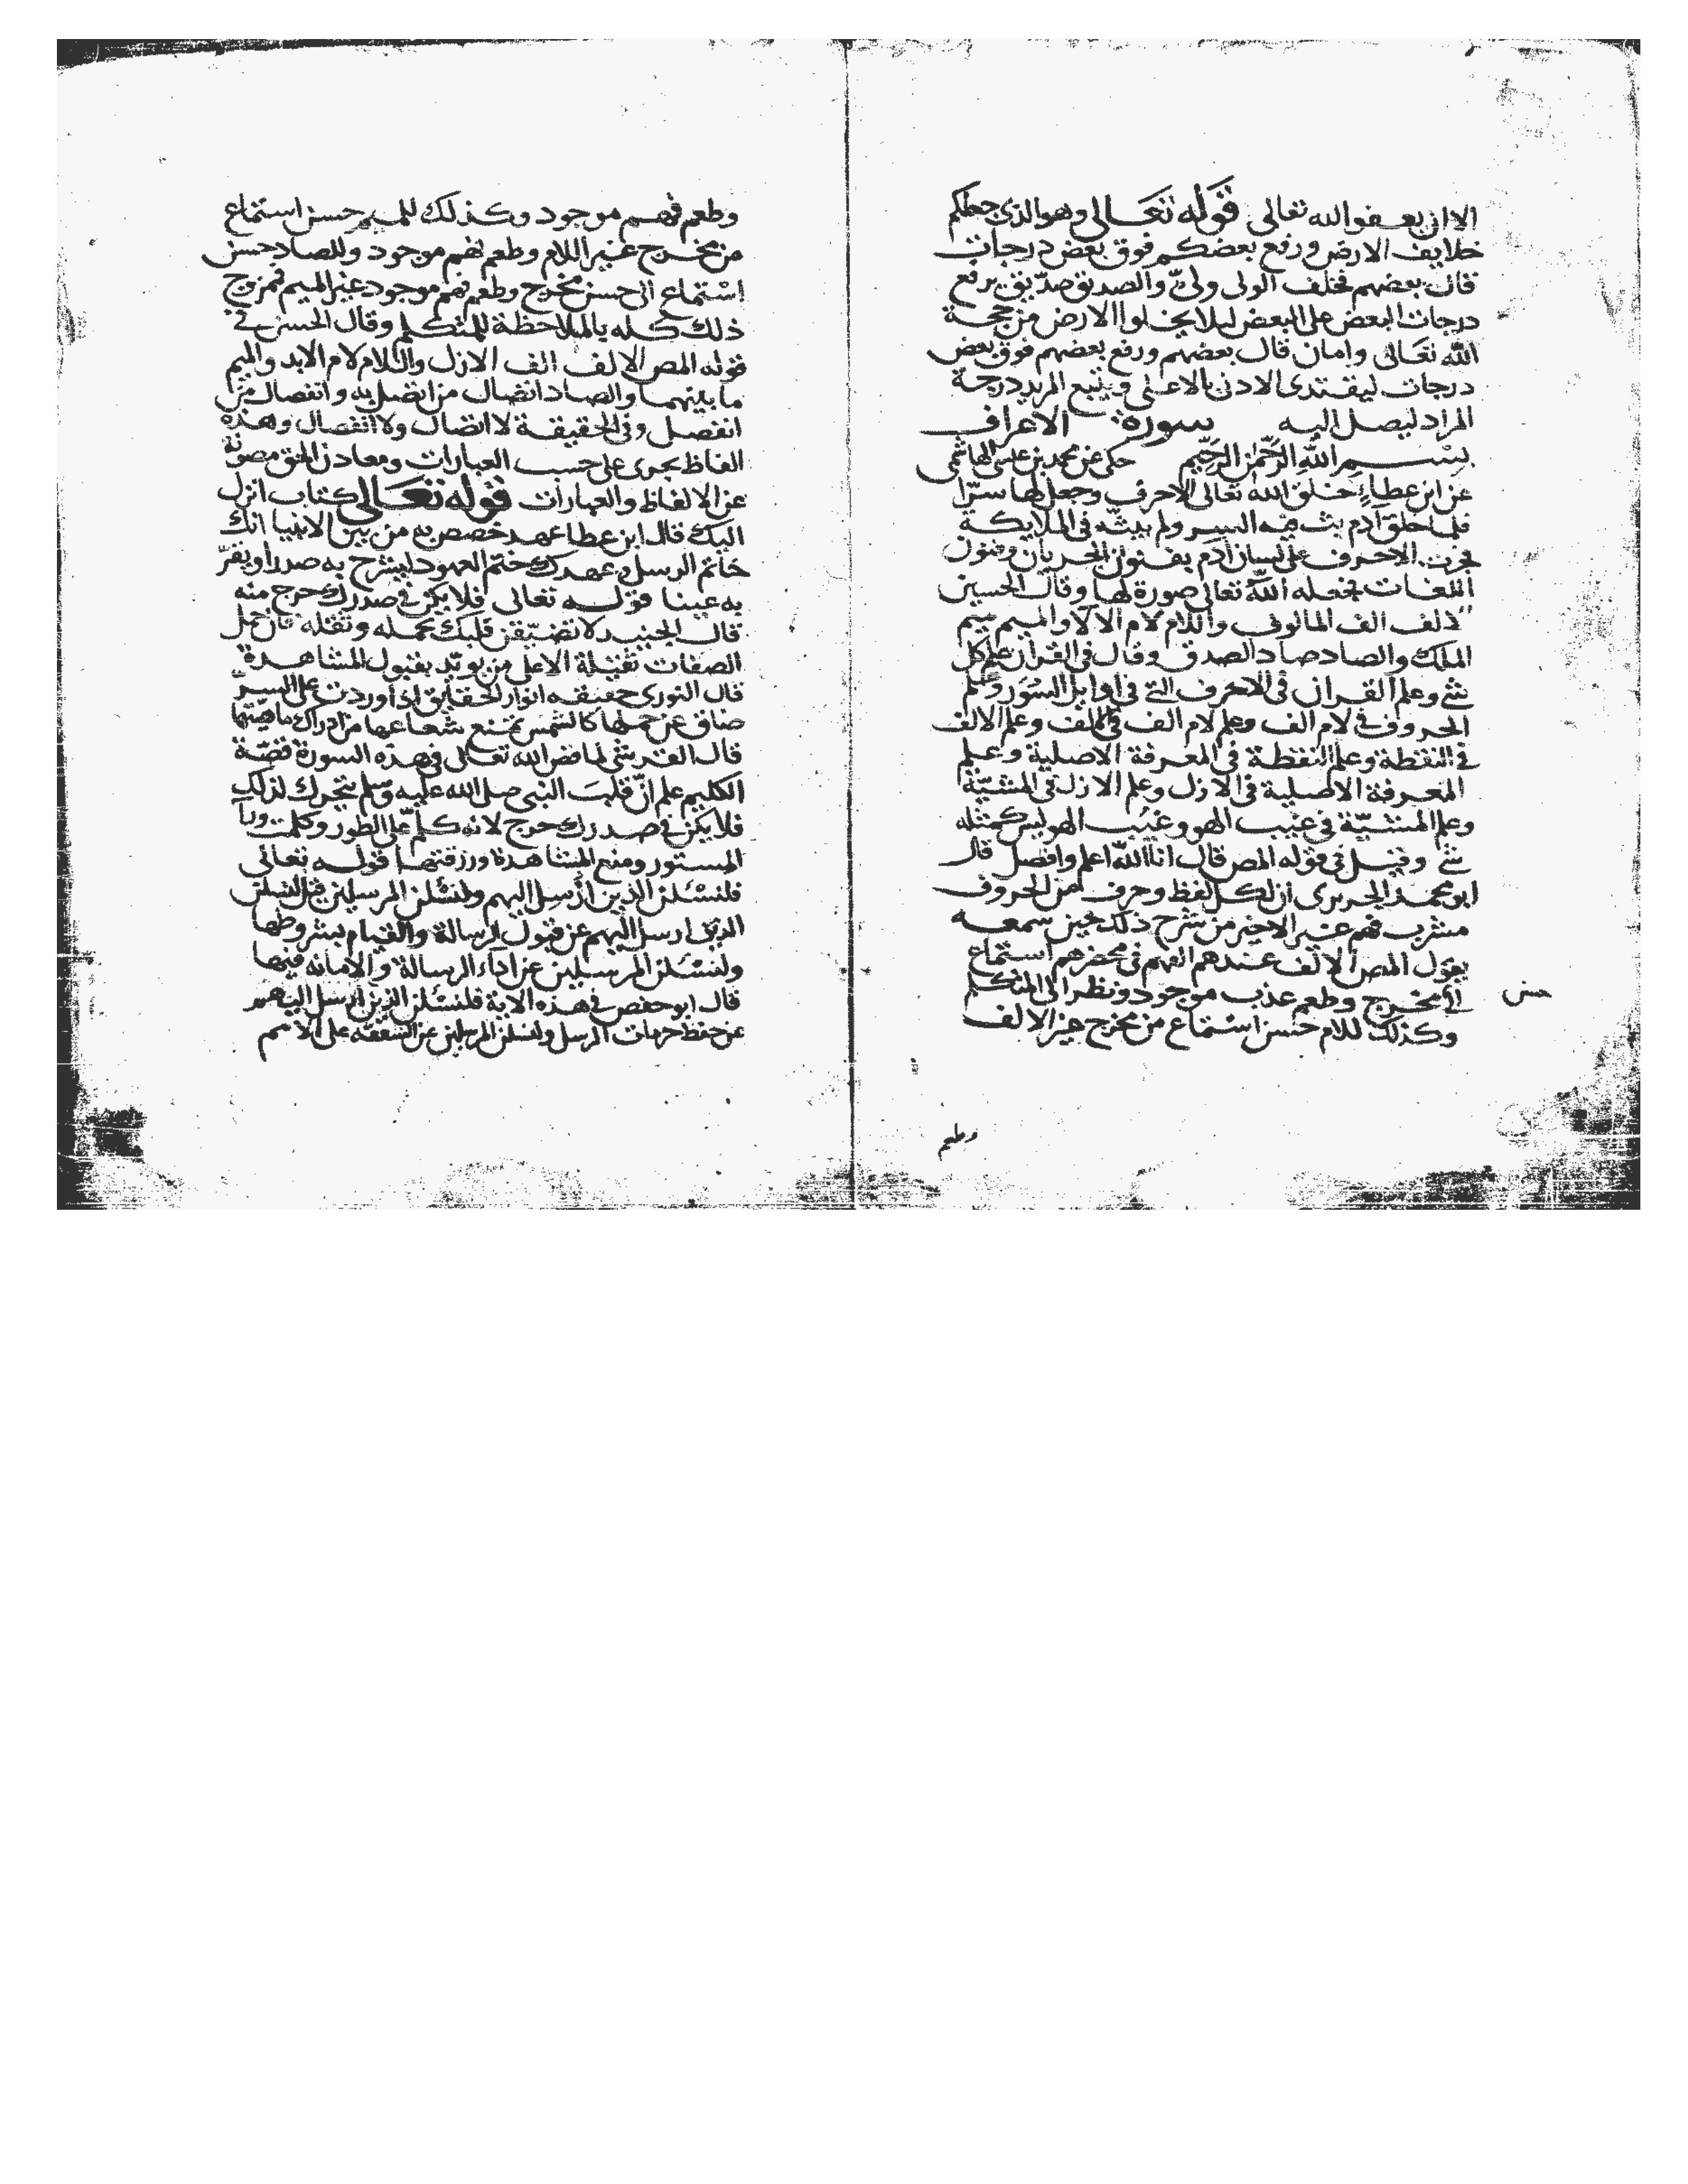 الا ان يعفو الله تعالى قوله تعالى وهو الذي جعلكم
خلايف الارض ورفع بعضكم فوق بعض درجات
قال بعضهم تخلف الولى ولىّ والصديق صدّيق يرفع
درجات البعض على البعض ليلا يخلوا الارض من حجة
الله تعالى وامان قال بعضهم ورفع بعضهم فوق بعض
درجات ليقتدى الادنى بالاعلى ويتبع المريد درجة
المراد ليصل اليه سورة الاعراف
بسم الله الرحمن الرحيم حكى عن محمد بن عيسى الهاشمى
عن ابن عطاء خلق الله تعالى الاحرف وجعل لها سرّا
فلما خلق ادم بث فيه السر ولم يبثّه فى الملايكة
فجرت الاحرف على لسان ادم بفنون الجريان وفنون
اللغات فجعله الله تعالى صورة لها وقال الحسين
الالف الف المالوف واللام لام الالاء والميم ميم
الملك والصاد صاد الصدق وقال فى القران علم كل
شئ وعلم القران فى الاحرف التى فى اوايل السور وعلم
الحروف فى لام الف وعلم لام الف فى الالف وعلم الالف
فى النقطة وعلم النقطة فى المعرفة الاصلية وعلم
المعرفة الاصلية فى الازل وعلم الازل فى المشيّة
وعلم المشيّة فى غيب الهو وغيب الهو ليس كمثله
شئ وقيل فى قوله المص قال انا الله اعلم وافصل قال
ابو محمد الجريرى ان لكل لفظ وحرف من الحروف
مشرب فهم غير الاخر من شرح ذلك حين سمعه
يقول المص الالف عندهم الفهم فى محضرهم استماع
حسن
الى مخرج وطعم عذب موجود ونظر الى المتكلم
وكذلك للام حسن استماع من مخرج غير الالف
وطعم
وطعم فهم موجود وكذلك للميم حسن استماع
من مخرج غير اللام وطعم فهم موجود وللصاد حسن
استماع الى حسن مخرج وطعم فهم موجود غير الميم فمزوج
ذلك كله بالملاحظة للمتكلم وقال الحسن فى
قوله المص الالف الف الازل واللام لام الابد والميم
ما بينهما والصاد اتصال من اتصل به وانفصال من
انفصل وفى الحقيقة لا اتصال ولا انفصال وهذه
الفاظ يجرى على حسب العبارات ومعادن الحق مصونة
عن الالفاظ والعبارات قوله تعالى كتاب انزل
اليك قال ابن عطا عهد خصص به من بين الانبيا انك
خاتم الرسل وعهدك ختم العهود ليشرح به صدرا ويقرّ
به عينا قوله تعالى فلا يكن فى صدرك حرج منه
قال الجنيد لا تضيّقن قلبك بحمله وثقله فان حمل
الصفات ثقيلة الا على من يويّد بقبول المشاهدة
قال النورى حقيقه انوار الحقايق اذا وردت على السرّ
ضاق عن حملها كالشمس تمنع شعاعها من ادراك ماهيّتها
قال القرشى لما قص الله تعالى فى هذه السورة قصّة
الكليم علم انّ قلب النبى صلى الله عليه وسلم يتحرك لذلك
فلا يكن فى صدرك حرج لانه كلّم على الطور وكلمت ورا
المستور ومنع المشاهدة ورزقتها قوله تعالى
فلنسئلن الذين ارسل اليهم ولنسئلن المرسلين قيل لنسئلن
الذين ارسل اليهم عن قبول الرسالة والقيام بشروطها
ولنسئلن المرسلين عن اداء الرسالة والامانه فيها
قال ابو حفص فى هذه الاية فلنسئلن الذين ارسل اليهم
عن حفظ حرمات الرسل ولنسئلن المرسلين عن الشفقه على الامم